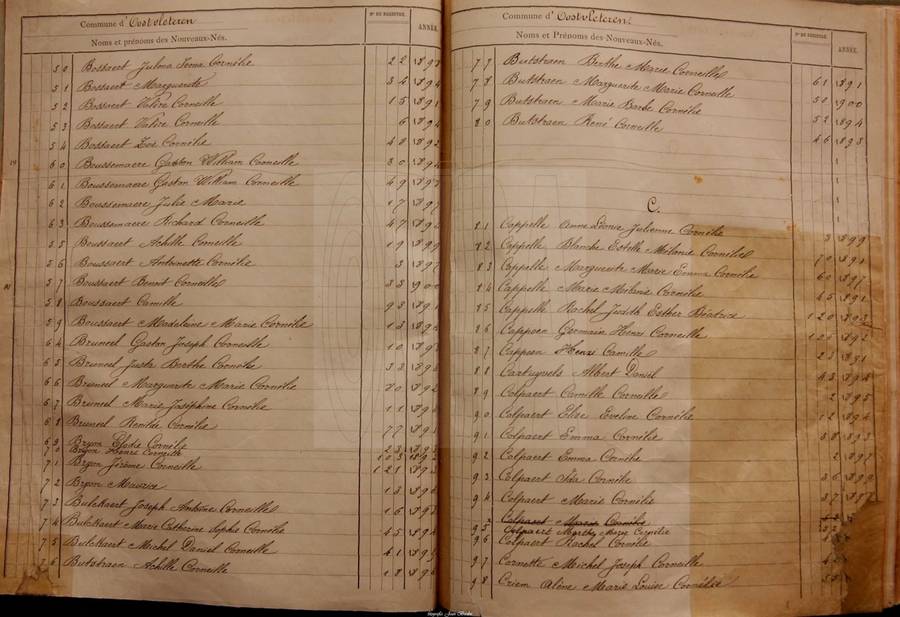 Commune d'Oostvleteren
Nº DU REGISTRE.
ANNÉE.
Noms et prénoms des Nouveaux-Nés.
50 Bossaert Julma Irma Cornélie 22
51 Bossaert Marguerite 34
52 Bossaert Valère Corneille 15 1891
53 Bossaert Valère Corneille 6 1894
54 Bossaert Zoé Cornélie 48 1892
60 Boussemaere Gaston William Corneille 30
61 Boussemaere Gaston William Corneille 49
62 Boussemaere Julie Marie 17 1897
63 Boussemaere Richard Corneille 47
55 Boussaert Achille Corneille 19 1899
56 Boussaert Antoinette Cornélie 3 1897
57 Boussaert Benoit Corneille 33 1900
58 Boussaert Camille 93 1891
59 Boussaert Madeleine Marie Cornélie 13
64 Bruneel Gaston Joseph Corneille 10
65 Bruneel Justa Berthe Cornélie 33
66 Bruneel Marguerite Marie Cornélie 70 1892
67 Bruneel Marie Joséphine Cornélie 11
68 Bruneel Remilde Cornélie 77
69 Bryon Elodie Cornélie
70 Bryon Henri Corneille
71 Bryon Jérôme Corneille 121 1893
72 Bryon Maurice 13
73 Bulckaert Joseph Antoine Corneille 16
74 Bulckaert Marie Catherine Sophie Cornélie 45
75 Bulckaert Michel Daniel Corneille 41
76 Butstraen Achille Corneille 18
Commune d'Oostvleteren.
Nº DU REGISTRE.
ANNÉE.
Noms et Prénoms des Nouveaux-Nés.
77 Butstraen Berthe Marie Corneille 61 1891
78 Butstraen Marguerite Marie Corneille 51 1900
79 Butstraen Marie Barbe Cornélie 52 1894
80 Butstraen René Corneille 46 1893
C.
81 Cappelle Anne Léonie Julienne Cornélie 3 1899
82 Cappelle Blanche Estelle Mélanie Cornélie 70 1891
83 Cappelle Marguerite Marie Emma Cornélie 60 1897
84 Cappelle Marie Mélanie Cornélie 45 1891
85 Cappelle Rachel Judith Esther Béatrice 120
86 Cappoen Germain Henri Corneille 1892
87 Cappoen Henri Camille 23 1891
88 Cartuyvels Albert Daniel 43
89 Colpaert Camille Corneille 2 1895
90 Colpaert Elise Eveline Cornélie 12
91 Colpaert Emma Cornélie 58 1893
92 Colpaert Emma Cornélie 2 1897
93 Colpaert Ida Cornélie 36
94 Colpaert Marie Cornélie 37
95 Colpaert Cornélie
Colpaert Marthe Marie Cornélie
96 Colpaert Rachel Cornélie
97 Cornette Michel Joseph Corneille
98 Criem Aline Marie Louise Cornélie